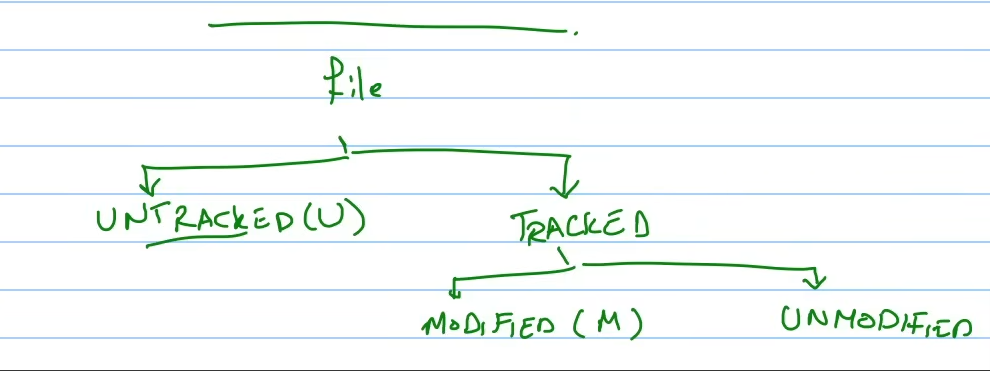 file
UNTRACKED (U)
TRACKED
MODIFIED (M)
UNMODIFIED